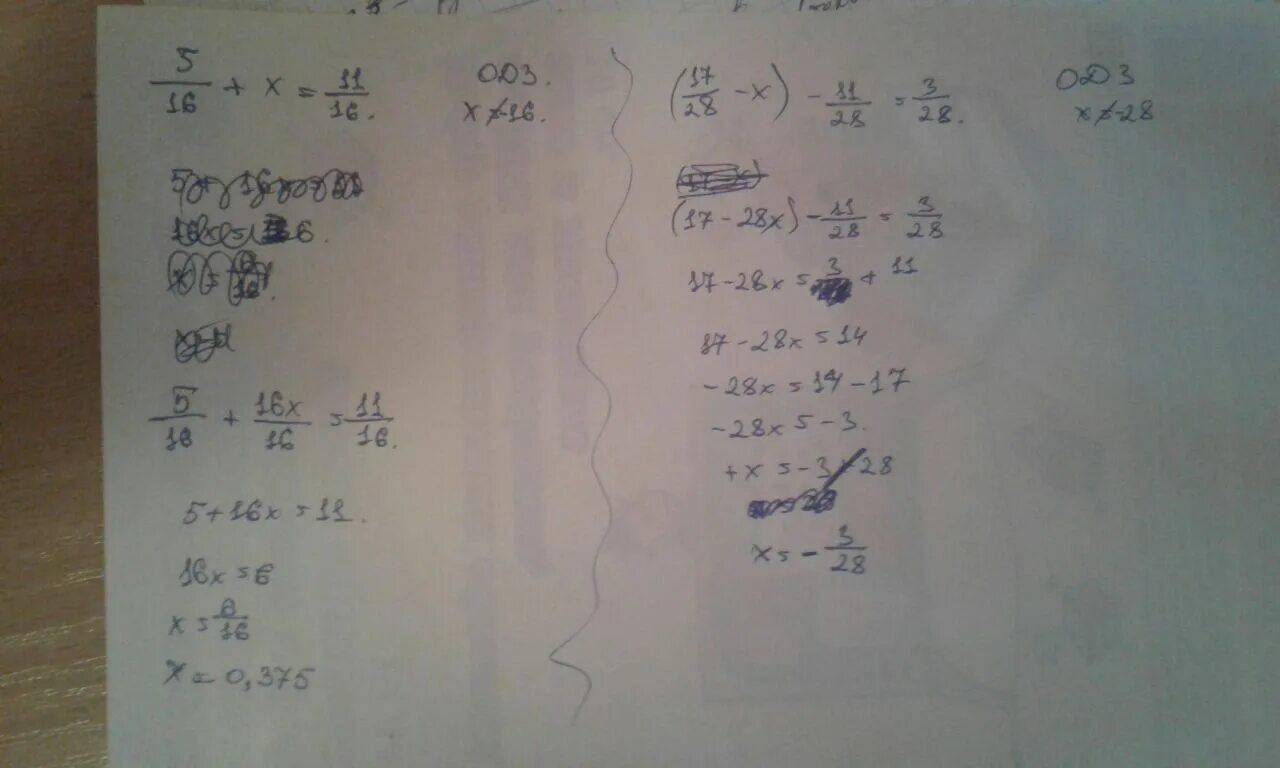 5/16 + x = 11/16.
ОДЗ.
x ≠ -16.
5/16 + 16x/16 = 11/16.
5+16x=11.
16x=6
x=6/16
x=0,375
(17/28 - x) - 11/28 = 3/28.
ОДЗ
x ≠ -28
(17-28x) - 11/28 = 3/28
17-28x=3 + 11
17-28x=14
-28x=14-17
-28x=-3.
+x=-3/28
x=-3/28